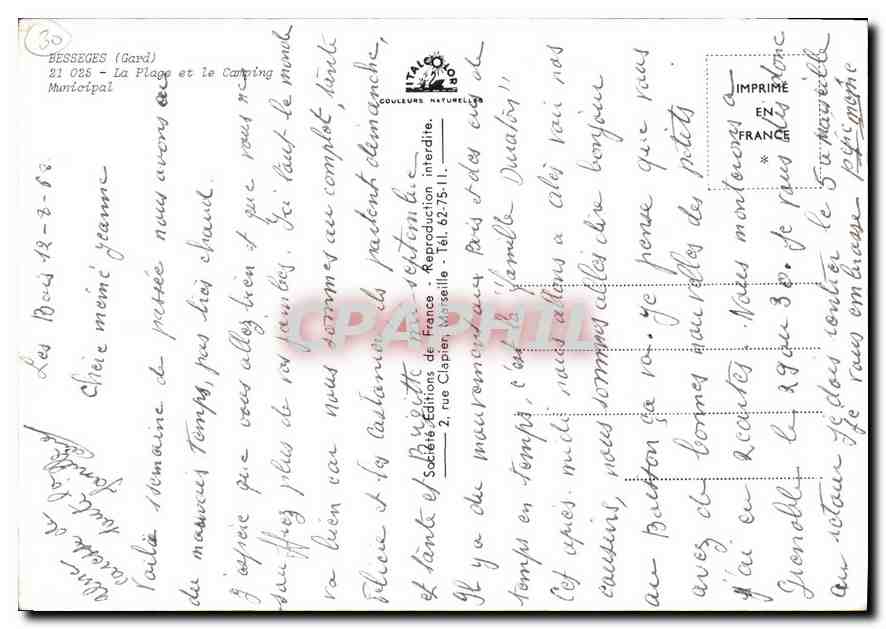 30
BESSEGES (Gard)
21 025 - La Plage et le Camping
Municipal
ITALCOLOR
COULEURS NATURELLES
Société Éditions de France - Reproduction interdite.
2, rue Clapier, Marseille - Tél. 62-75-11.
IMPRIMÉ
EN
FRANCE
*
CPAPHIL
Les Bois 12-8-63
Chère mémé Jeanne
Voilà 1 semaine de passée nous avons eu
du mauvais temps, pas très chaud.
J'espère que vous allez bien et que vous ne
souffrez plus de vos jambes. Ici tout le monde
va bien car nous sommes au complet, tante
Félicie et les Castanier ils partent dimanche,
et tante et Brigitte mi-septembre
Il y a du mouvement aux Bois et des cris de
temps en temps, c'est la famille Duraton !!
Cet après-midi nous allons à Alès voir nos
cousins, nous sommes allés dire bonjour
au Buisson ça va. Je pense que vous
avez de bonnes nouvelles des petits
j'ai eu 2 cartes. Nous monterons à
Grenoble le 29 ou 30. Je vous dis donc
au retour je dois rentrer le 5 à Marseille
Je vous embrasse pépé mémé